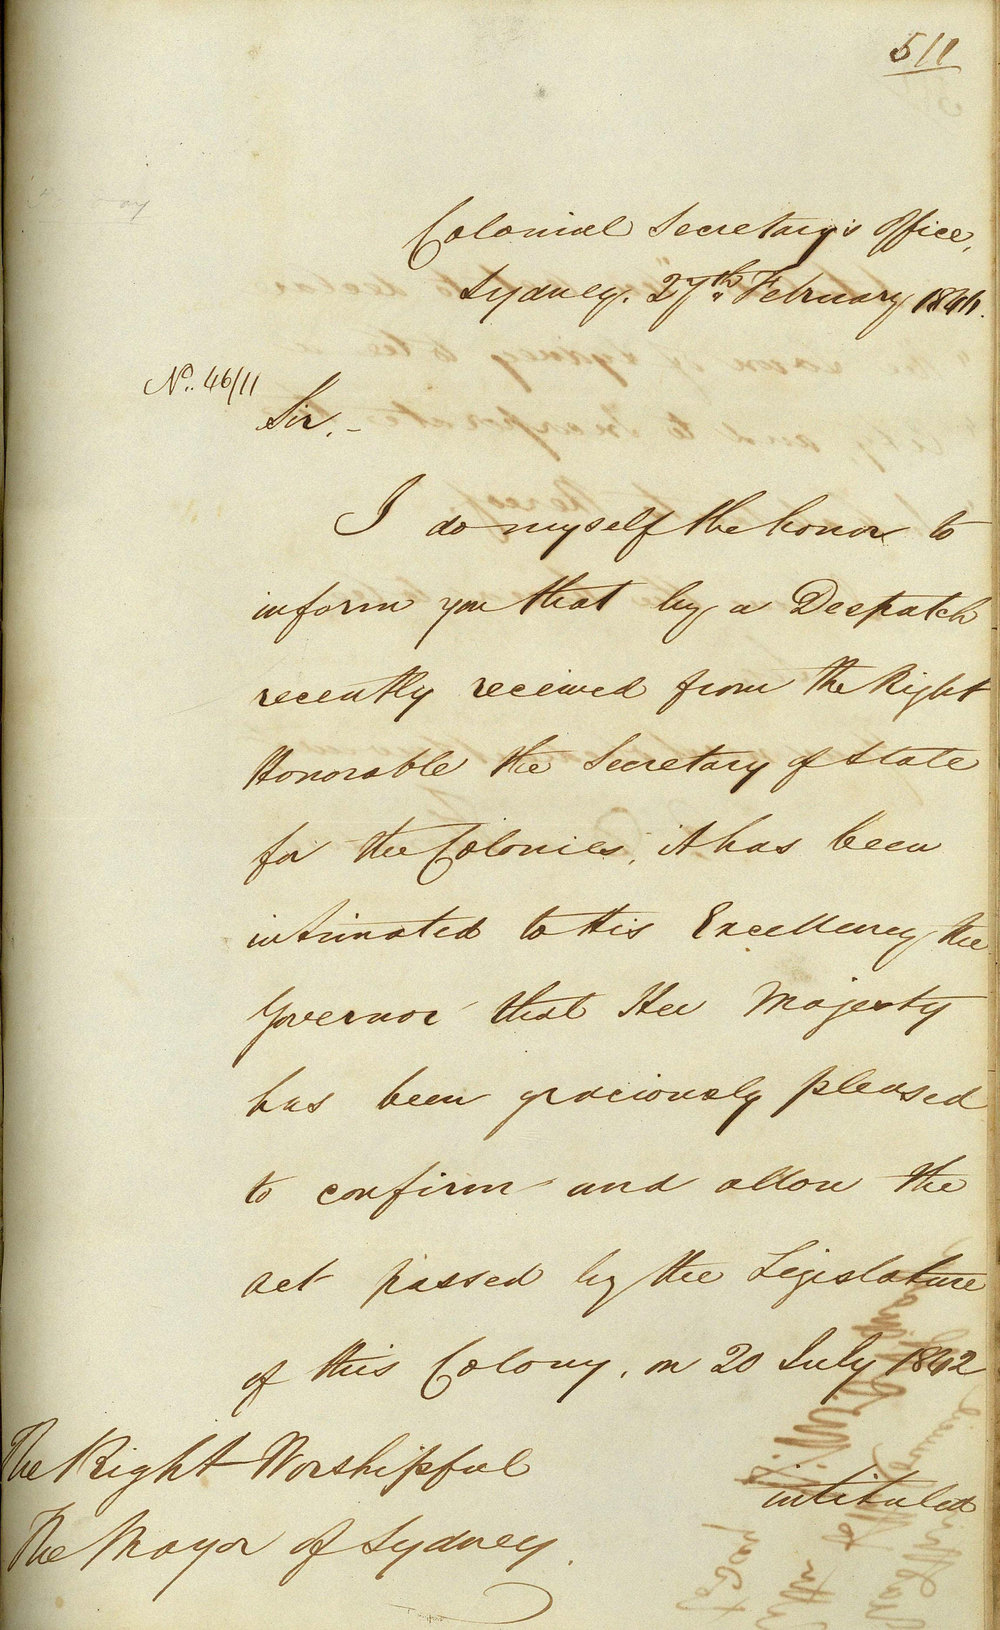 511
Colonial Secretary's Office,
Sydney. 27th February 1846.
No. 46/11
Sir,-
I do myself the honor to
inform you that by a Despatch
recently received from the Right
Honorable the Secretary of State
for the Colonies, it has been
intimated to His Excellency the
Governor that Her Majesty
has been graciously pleased
to confirm and allow the
act passed by the Legislature
of this Colony, on 20 July 1842
The Right Worshipful
intituled
The Mayor of Sydney.